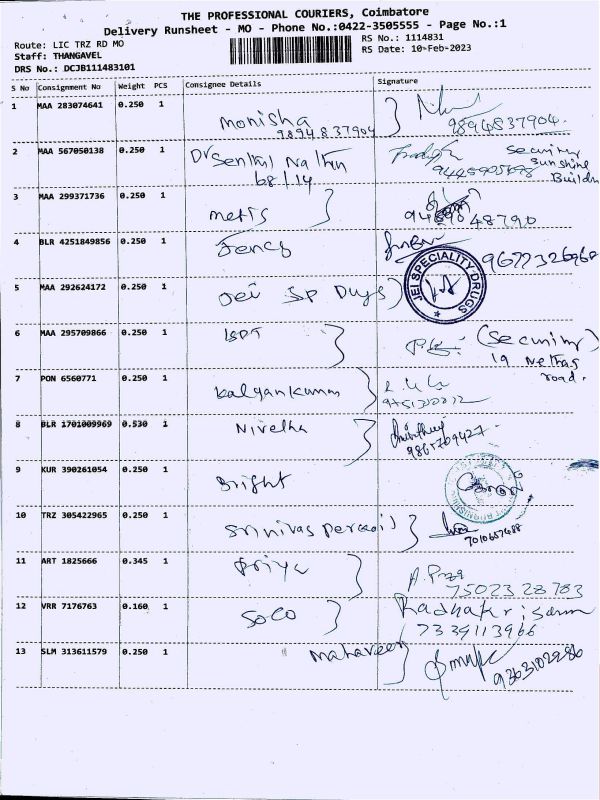 THE PROFESSIONAL COURIERS, Coimbatore
Delivery Runsheet - MO - Phone No.:0422-3505555 - Page No.:1
Route: LIC TRZ RD MO
RS No.: 1114831
Staff: THANGAVEL
RS Date: 10-Feb-2023
DRS No.: DCJB111483101
S No Consignment No Weight PCS Consignee Details Signature
1 MAA 283074641 0.250 1
monisha
9894837904 9894837904.
2 MAA 567050138 0.250 1
Dr Senthil Nathan Security
sunshine
68/14 Buildn
3 MAA 299371736 0.250 1
metis 48790
4 BLR 4251849856 0.250 1
Fency
JEI SPECIALITY DRUGS
5 MAA 292624172 0.250 1
Jei Sp Dugs
6 MAA 295709866 0.250 1
(Security)
19 Nethaj
road.
7 PON 6560771 0.250 1
kalyankumar
8 BLR 1701009969 0.530 1
Nivetha
9867709427
9 KUR 390261054 0.250 1
Bright
10 TRZ 305422965 0.250 1
Srinivas
7010657688
11 ART 1825666 0.345 1
Priya
75023 28783
12 VRR 7176763 0.160 1
SOCO
7339113966
13 SLM 313611579 0.250 1
mahaveer
9363102286